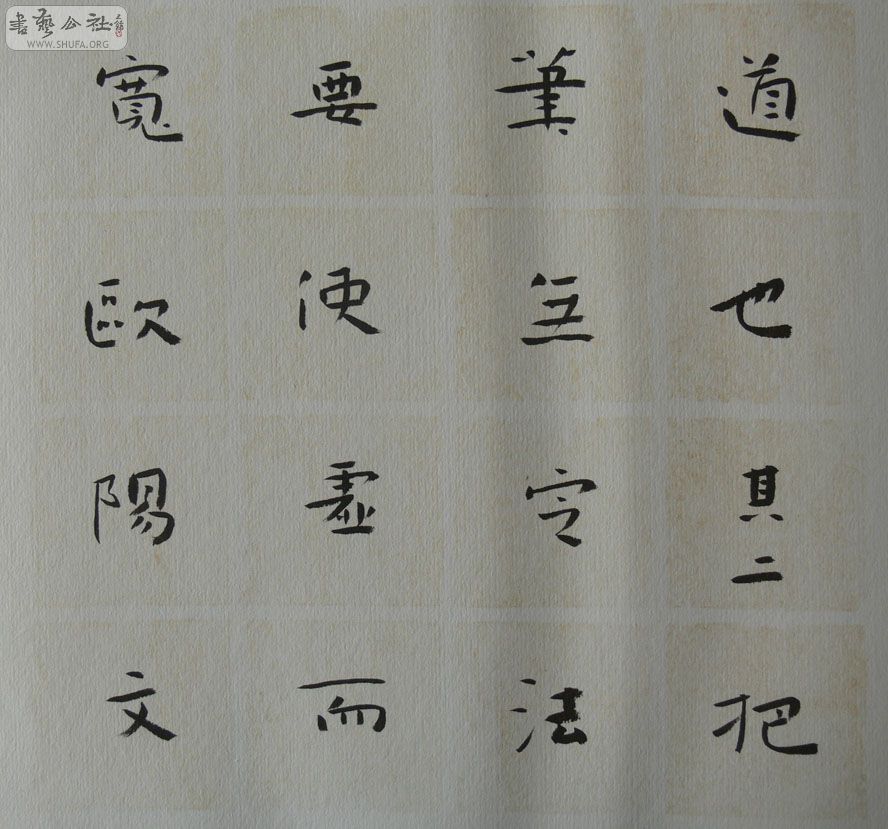 道也其二把
筆無定法
要使虛而
寬歐陽文
書藝公社
WWW.SHUFA.ORG